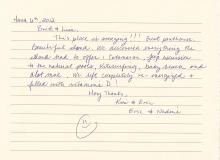 2012
This place is amazing!!! Great penthouse.
Beautiful island. We discovered everything the
island had to offer: Catamaran, jeep excursion
to the natural pools, Kitesurfing, baby beach and
alot more. We left completely re-energized &
filled with vitamine D!
Many Thanks,
& Eric
Eric &